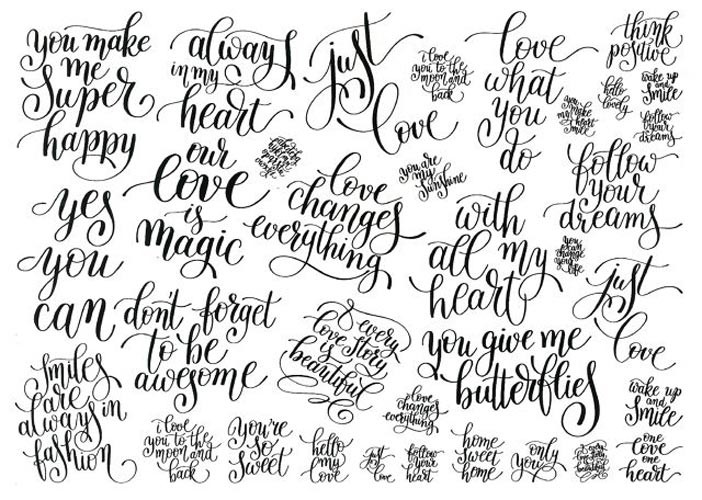 you make
me
super
happy
always
in my
heart
just
love
i love
you to the
moon and
back
love
what
you
do
think
positive
hello
lovely
wake up
and
smile
you
make
my heart
smile
follow
your
dreams
our
love
is
magic
love
changes
everything
you are
my
sunshine
follow
your
dreams
yes
you
can
with
all my
heart
you
can
change
your
life
just
love
don't forget
to be
awesome
every
love story
is
beautiful
you give me
butterflies
smiles
are
always in
fashion
love
changes
everything
wake up
and
smile
i love
you to the
moon and
back
you're
so
sweet
hello
my
love
just
love
follow
your
heart
home
sweet
home
only
you
one
love
one
heart